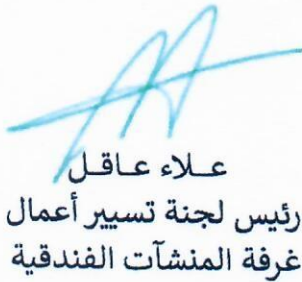 عــلاء عــاقــل
رئيس لجنة تسيير أعمال
غرفة المنشآت الفندقية